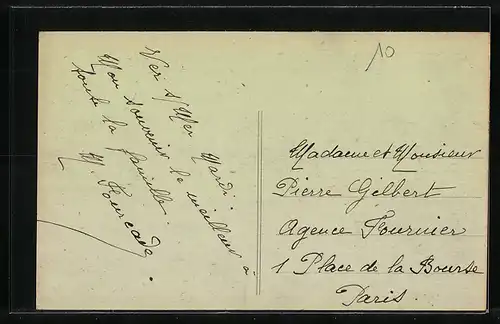 10
Ver s/Mer Mardi.
Mon souvenir le meilleur à
toute la famille.
M. Fourcade.
Madame et Monsieur
Pierre Gilbert
Agence Fournier
1 Place de la Bourse
Paris.